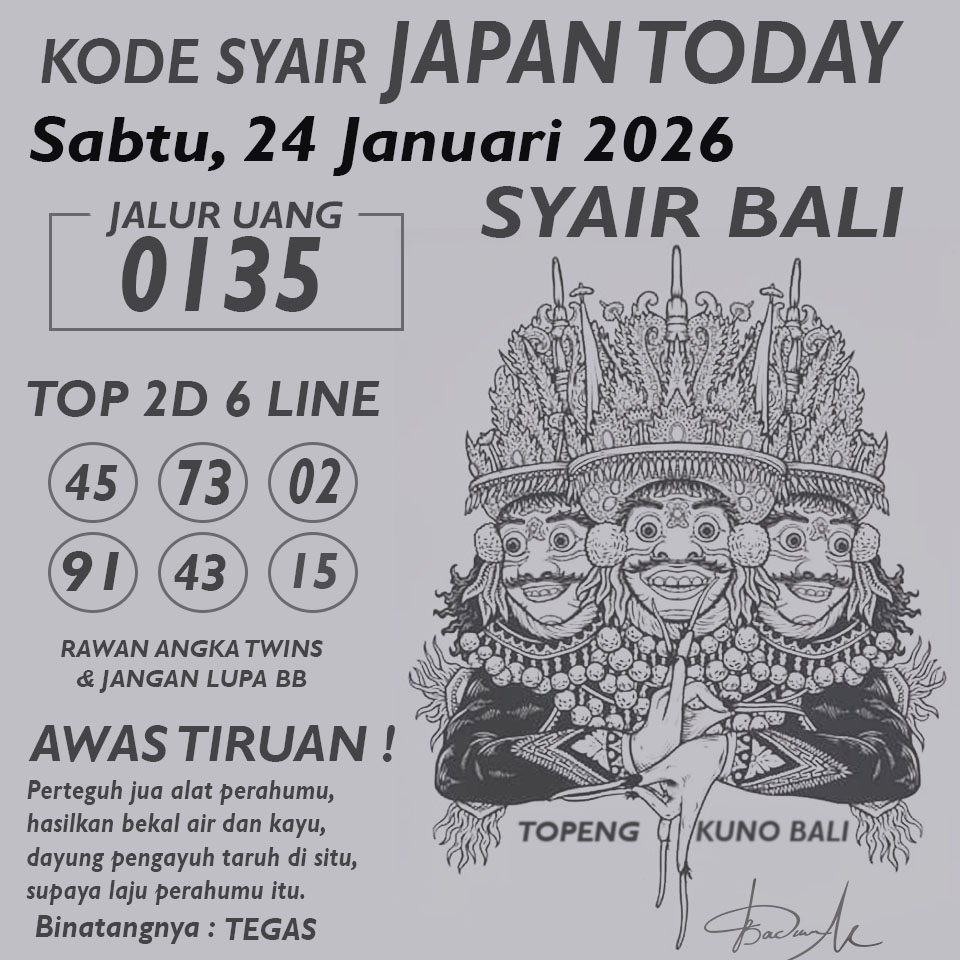 KODE SYAIR JAPAN TODAY
Sabtu, 24 Januari 2026
SYAIR BALI
JALUR UANG
0135
TOP 2D 6 LINE
45 73 02
91 43 15
RAWAN ANGKA TWINS
& JANGAN LUPA BB
AWAS TIRUAN !
Perteguh jua alat perahumu,
hasilkan bekal air dan kayu,
dayung pengayuh taruh di situ,
supaya laju perahumu itu.
Binatangnya : TEGAS
TOPENG KUNO BALI